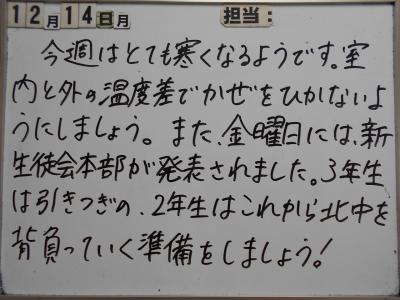 12月14日月 担当：
今週はとても寒くなるようです。室
内と外の温度差でかぜをひかないよ
うにしましょう。また、金曜日には、新
生徒会本部が発表されました。3年生
は引きつぎの、2年生はこれから北中を
背負っていく準備をしましょう！